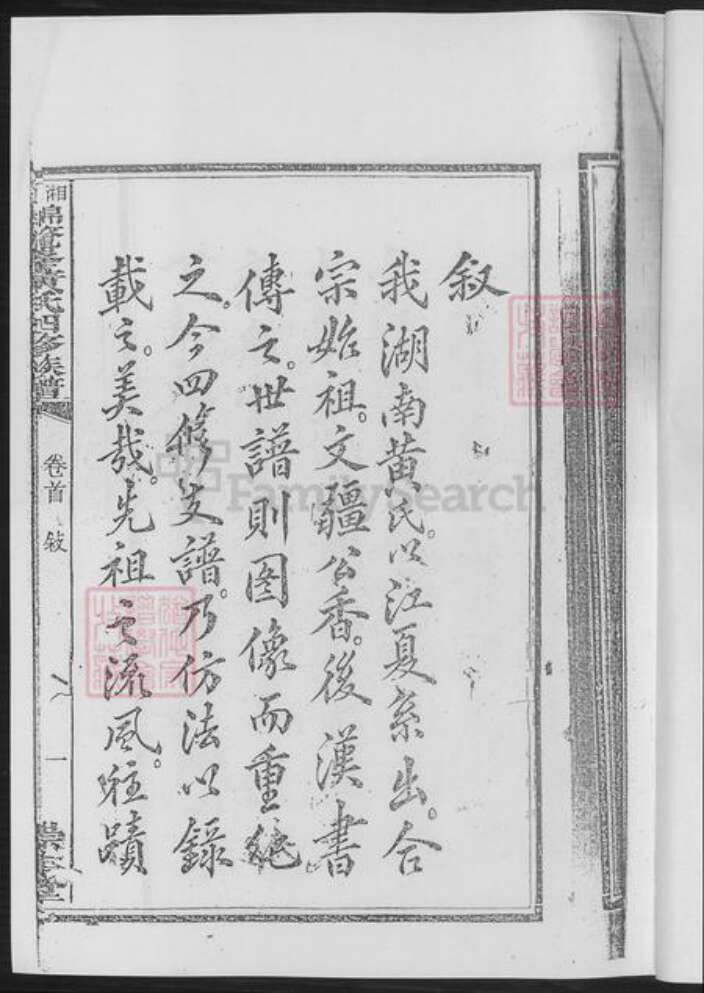 叙
我湖南黄氏。以江夏系出。合
宗始祖。文疆公香。後漢書
傳之。世譜則图像而重絶
之。今四修支譜。乃仿法以録
載之。美哉。先祖之流風。往蹟
湘
黃氏四修族譜
卷首 敍
一
堂
FamilySearch